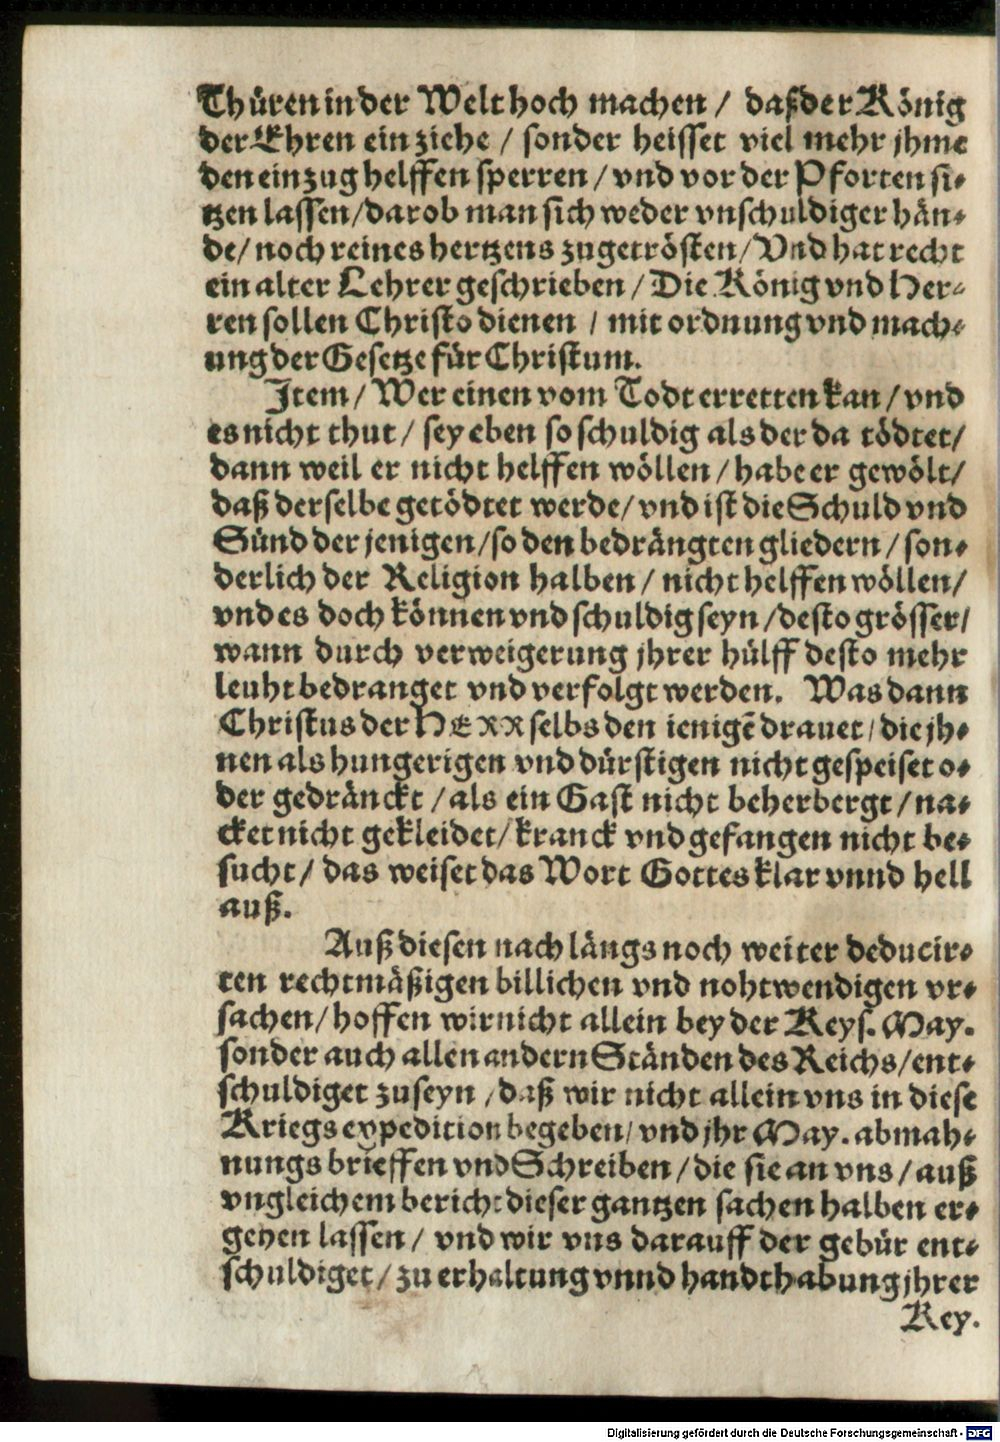 Thüren in der Welt hoch machen / daß der König
der Ehren einziehe / sonder heisset viel mehr jhme
den einzug helffen sperren / vnd vor der Pforten si-
tzen lassen / darob man sich weder vnschuldiger hän-
de / noch reines hertzens zugetrösten / Vnd hat recht
ein alter Lehrer geschrieben / Die König vnd Her-
ren sollen Christo dienen / mit ordnung vnd mach-
ung der Gesetze für Christum.
Item / Wer einen vom Todt erretten kan / vnd
es nicht thut / sey eben so schuldig als der da tödtet /
dann weil er nicht helffen wöllen / habe er gewölt /
daß derselbe getödtet werde / vnd ist die Schuld vnd
Sünd der jenigen / so den bedrängten gliedern / son-
derlich der Religion halben / nicht helffen wöllen /
vnd es doch können vnd schuldig seyn / desto grösser /
wann durch verweigerung jhrer hülff desto mehr
leuht bedranget vnd verfolgt werden. Was dann
Christus der HERR selbs den ienigē drauet / die jh-
nen als hungerigen vnd dürstigen nicht gespeiset o-
der gedränckt / als ein Gast nicht beherbergt / na-
cket nicht gekleidet / kranck vnd gefangen nicht be-
sucht / das weiset das Wort Gottes klar vnnd hell
auß.
Auß diesen nach längs noch weiter deducir-
ten rechtmäßigen billichen vnd nohtwendigen vr-
sachen / hoffen wir nicht allein bey der Keys. May.
sonder auch allen andern Ständen des Reichs / ent-
schuldiget zuseyn / daß wir nicht allein vns in diese
Kriegsexpedition begeben / vnd jhr May. abmah-
nungs brieffen vnd Schreiben / die sie an vns / auß
vngleichem bericht dieser gantzen sachen halben er-
gehen lassen / vnd wir vns darauff der gebür ent-
schuldiget / zu erhaltung vnnd handthabung jhrer
Key.
Digitalisierung gefördert durch die Deutsche Forschungsgemeinschaft - DFG